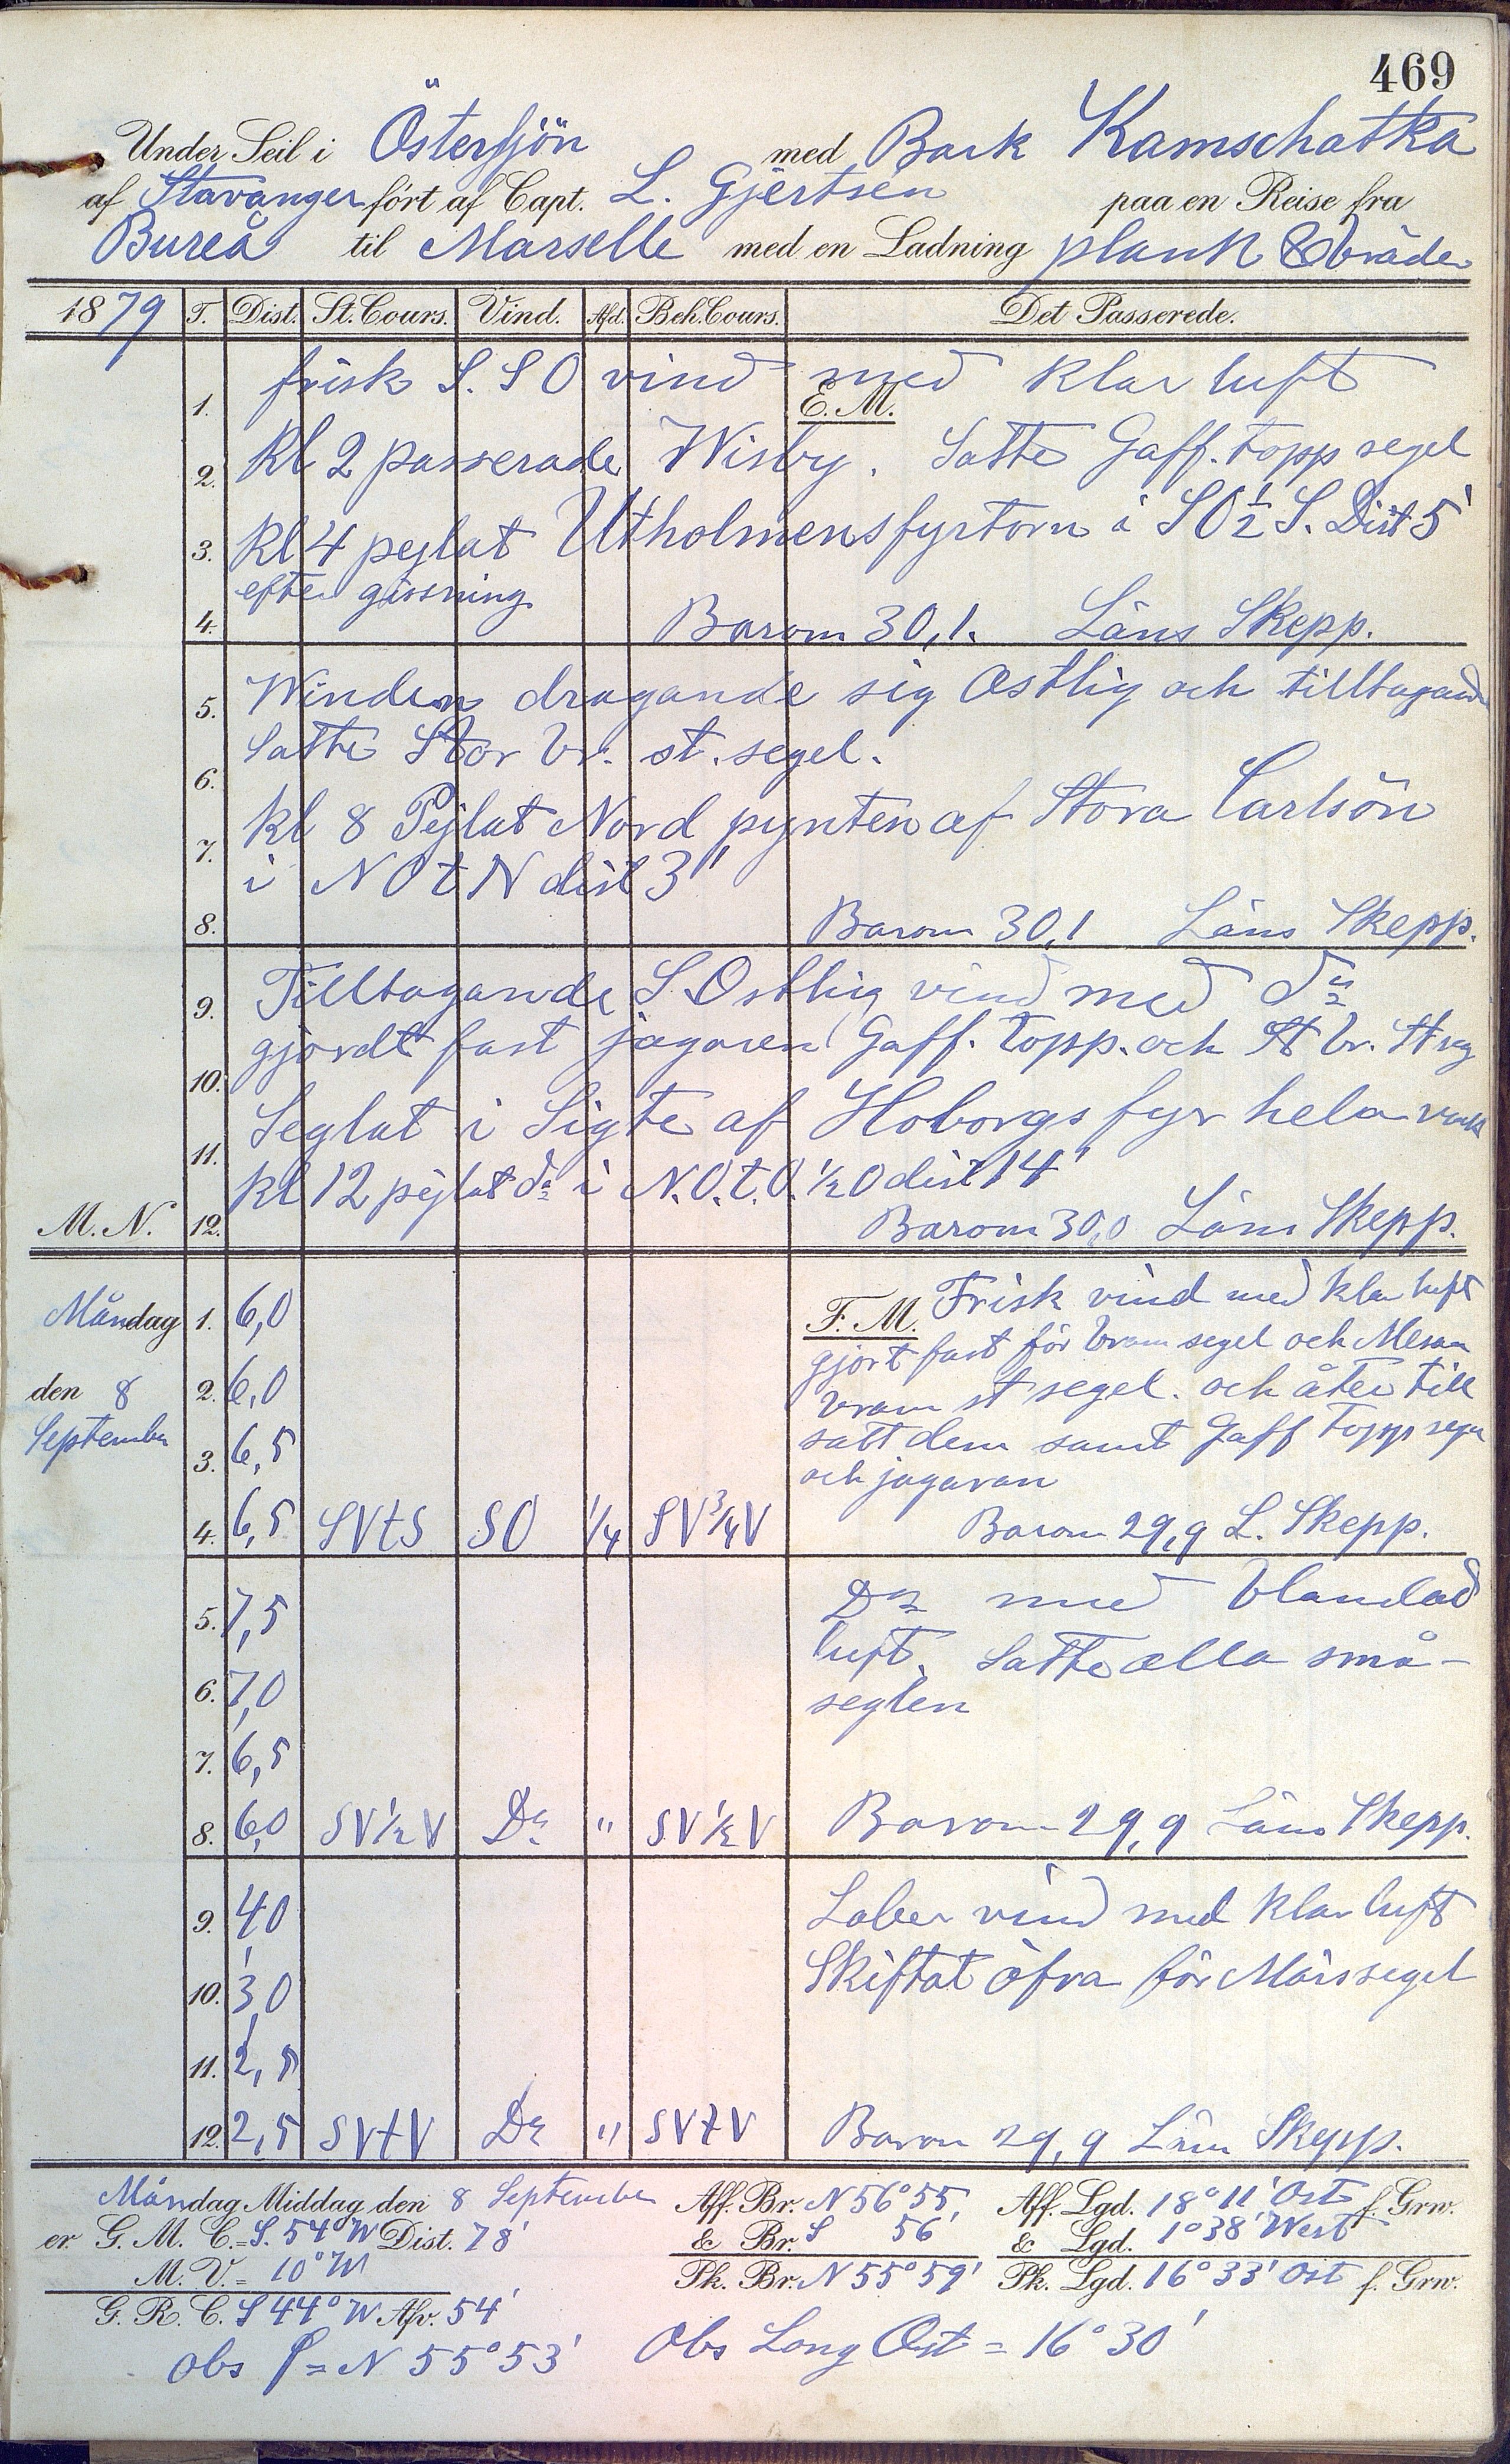 469
Under Seil i Östersjön med Bark Kamschatka
af Stavanger ført af Capt. L. Gjertsen paa en Reise fra
Bureå til Marselle med en Ladning plank & bräder
1879 T. Dist. St. Cours. Vind. Afd. Beh. Cours. Det Passerede.
frisk S.SO vind med klar luft
1. E. M.
2. Kl 2 passerade Wisby. Satte Gaff. topp segel
3. Kl 4 pejlat Utholmensfyrtorn i SO ½ S. Dist 5'
efter gissning
4. Barom 30,1. Läns Skepp.
5. Winden dragande sig Ostlig och tilltagande
Satte Stor br. st. segel.
6.
7. kl 8 Pejlat Nord pynten af Stora Carlsön
i NOtN dist 3'
8. Barom 30,1 Läns Skepp.
9. Tilltagande S.Ostlig vind med do
gjordt fast jagaren Gaff. topp. och St br. St seg
10.
11. Seglat i Sigte af Hoborgs fyr hela vakt
kl 12 pejlat do i N.O.t.O. ½ O dist 14'
M. N. 12. Barom 30,0 Läns Skepp.
Måndag 1. 6,0 F. M. Frisk vind med klar luft
gjort fast för bram segel och Mesan
den 8 2. 6,0 bram st segel. och åter till
September 3. 6,5 satt dem samt Gaff Topp segel
och jagaran
4. 6,5 SVtS SO ¼ SV ¾ V Barom 29,9 L. Skepp.
5. 7,5 Do med blandad
6. 7,0 luft. Satte alla små-
seglen
7. 6,5
8. 6,0 SV ½ V Do " SV ½ V Barom 29,9 Läns Skepp.
9. 4,0 Laber vind med klar luft
10. 3,0 Skiftat öfra för Märssegel
11. 2,5
12. 2,5 SVtV Do " SVtV Barom 29,9 Läns Skepp.
Måndag Middag den 8 September Aff. Br. N 56° 55' Aff. Lgd. 18° 11' Ost f. Grw.
er G. M. C. = S. 54° W Dist. 78' & Br. S 56' & Lgd. 1° 38' West
M. V. = 10° W Pk. Br. N 55° 59' Pk. Lgd. 16° 33' Ost f. Grw.
G. R. C. S 44° W Afv. 54'
Obs = N 55° 53' Obs Long Ost = 16° 30'